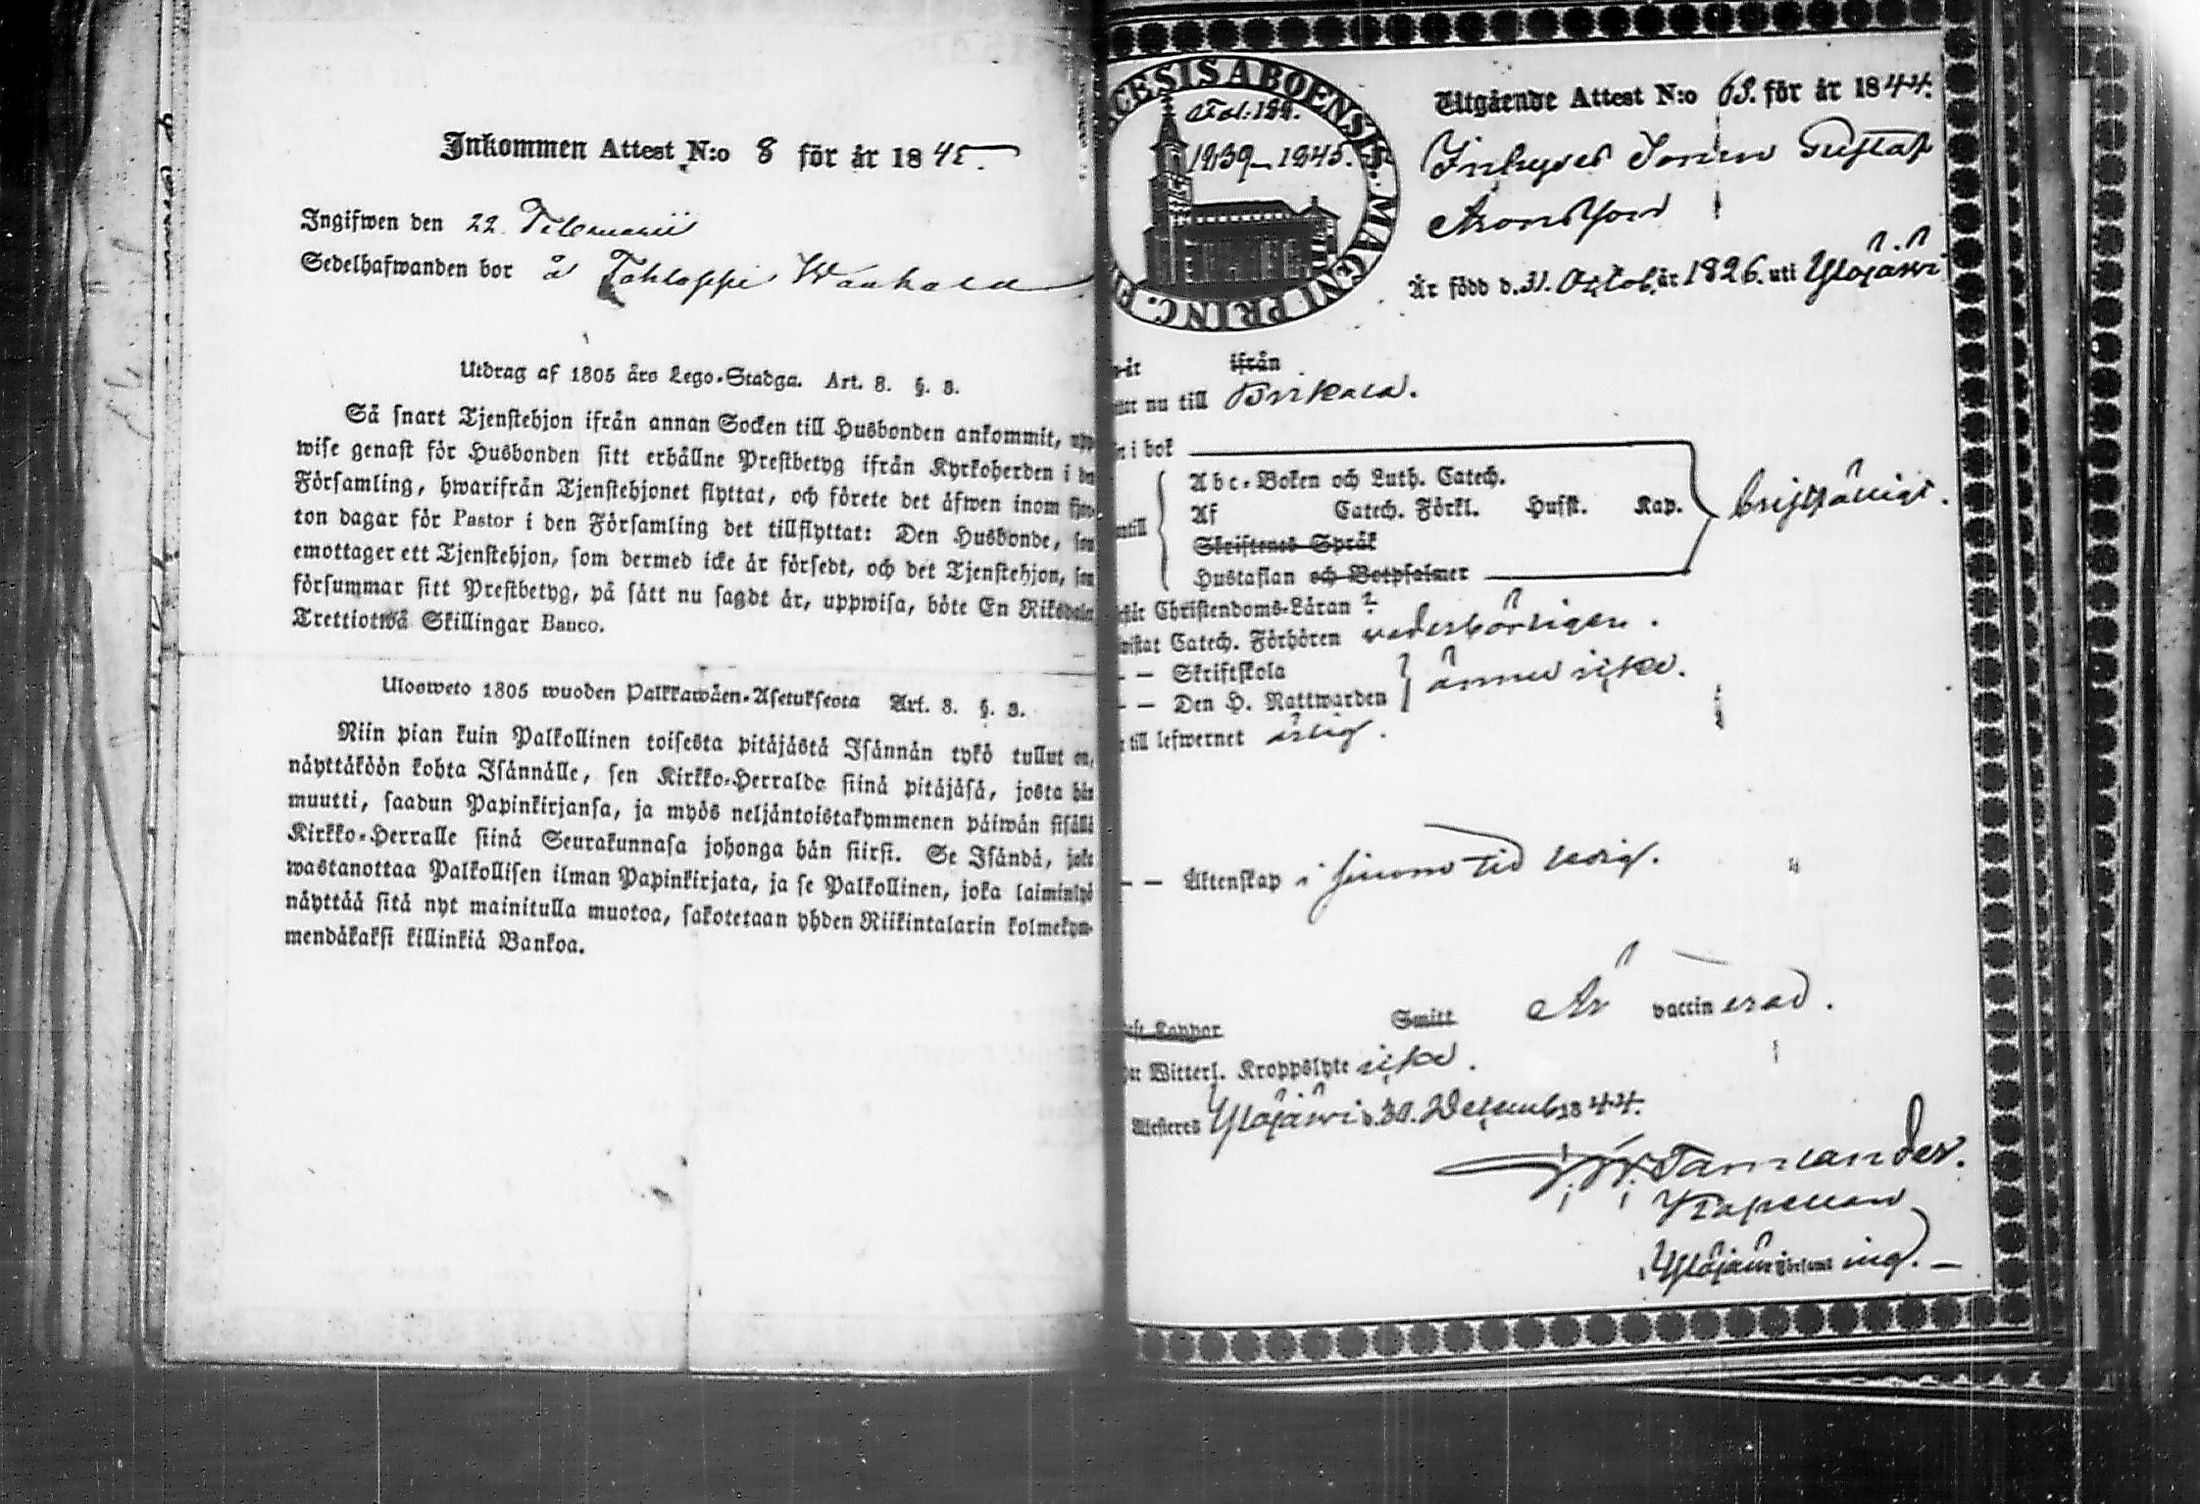 Inkommen Attest N:o 8 för år 1845.
Ingifwen den 22 Februarii
Sedelhafwanden bor å Tohloppi Waahala
Utdrag af 1805 års Lego-Stadga. Art. 8. §. 3.
Så snart Tjenstehjon ifrån annan Socken till Husbonden ankommit, upp-
wise genast för Husbonden sitt erhållne Prestbetyg ifrån Kyrkoherden i den
Församling, hwarifrån Tjenstehjonet flyttat, och förete det äfwen inom fjor-
ton dagar för Pastor i den Församling det tillflyttat: Den Husbonde, som
emottager ett Tjenstehjon, som dermed icke är försedt, och det Tjenstehjon, som
försummar sitt Prestbetyg, på sätt nu sagdt är, uppwisa, böte En Riksdaler
Trettiotwå Skillingar Banco.
Ulosweto 1805 wuoden Palkkawäen-Asetuksesta Art. 8. §. 3.
Niin pian kuin Palkollinen toisesta pitäjästä Isännän tykö tullut on,
näyttäköön kohta Isännälle, sen Kirkko-Herralda siinä pitäjäsä, josta hän
muutti, saadun Papinkirjansa, ja myös neljäntoistakymmenen päiwän sisällä
Kirkko-Herralle siinä Seurakunnasa johonga hän siirsi. Se Isändä, joka
wastanottaa Palkollisen ilman Papinkirjata, ja se Palkollinen, joka laiminlyö
näyttää sitä nyt mainitulla muotoa, sakotetaan yhden Riikintalarin kolmekym-
mendäkaksi killinkiä Bankoa.
CESIS ABOENSIS. MAGNI PRINC. F
Fol. 122.
1839–1845.
Utgående Attest N:o 63. för år 1844.
Gustaf
Aronsson
Är född d. 31. Octob. år 1826. uti Ylöjärwi
ifrån
nu till Birkala.
i bok
Abc-Boken och Luth. Catech.
Af Catech. Förkl. Husst. Kap.
Skriftenes Språk
Hustaflan och Botpsalmer
bristfälligt.
Christendoms-Läran
Catech. Förhören vederbörligen.
— Skriftskola
— Den H. Nattwarden
ännu icke.
till lefwernet ärlig.
— Äktenskap i sinom tid ledig.
Koppor Smitt Är vaccinerad.
Witterl. Kroppslyte icke.
Attesteras Ylöjärwi d. 30. Decemb. 1844.
Tamlander.
Kapellan
i Ylöjärwi Församling.